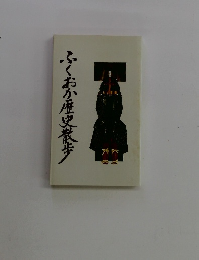 ふくおか歴史散歩